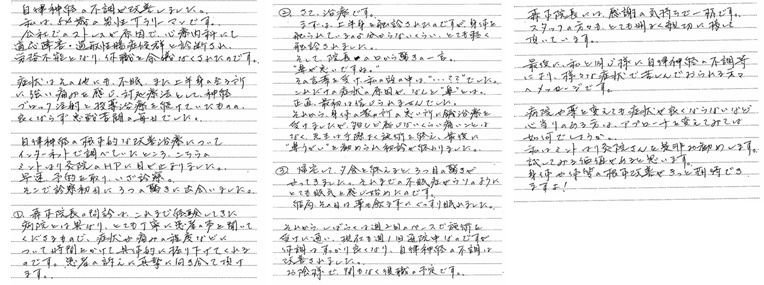 自律神経の不調が改善しました。
私は、40歳の男性サラリーマンです。
会社でのストレスが原因で、心療内科にて
適応障害・過敏性腸症候群と診断され、
労務不能となり、休職を余儀なくされたのです。
症状はその他にも、不眠、また上半身の至る所
に強い痛みを感じ、対処療法として、神経
ブロック注射と投薬治療を続けていたものの、
良くならず悪戦苦闘の毎日でした。
自律神経の根本的な改善治療について
インターネットで調べていたところ、こちらの
ミントはり灸院のHPに目が止まりました。
早速、予約を取り、いざ診療。
そこで診療初日に3つの驚きに出会いました。
① 森本院長の問診は、これまで経験してきた
病院とは異なり、とても丁寧に患者の声を聞いて
くださるもので、症状や痛みの程度などに
ついて時間をかけて具体的に掘り下げてくれる
のです。患者の訴えに真摯に向き合って頂け
ます。
② さて、治療です。
まずは、上半身を触診されたのですが、身体を
触られているのが分からないくらい、とても軽く
触診されました。
そして院長の口から驚きの一言。
"鼻が悪いですね。"
その言葉を受け、私の頭の中は"・・・?"でした。
これだけの症状の原因が、なんと"鼻"とは。
正直、最初は信じられませんでした。
それから、身体の数ヶ所の悪い所に鍼治療を
受けましたが、殆んど感じないくらい痛いことは
なく、先生は手際よく施術を終え、最後に
"鼻うがい"を勧められ初診が終わりました。
③ 帰宅して、夕食を終えると3つ目の驚きが
やってきました。それまでの不眠症がウソのように
とても眠気を感じ始めたのです。
結局その日は薬の飲まずにぐっすり眠れました。
それから、しばらくは週2日のペースで施術を
受けに通い、現在も週1回通院中なのですが
体調はすっかり良くなり、自律神経の不調は
改善されました。
お陰様で、間もなく復職の予定です。
森本院長には、感謝の気持ちで一杯です。
スタッフの方々も、とても明るく親切に接して
頂いています。
最後に、私と同じ様に自律神経の不調等
により、様々な症状で苦しんでおられる方々
へメッセージです。
病院や薬を変えても症状が良くならないなど
心当りのある方は、アプローチを変えてみては
如何でしょうか。
私はミントはり灸院さんを是非お勧めします。
試してみる価値があると思います。
身体や体質の根本改善がきっと期待でき
ますよ!